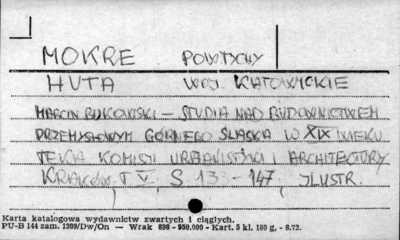 MOKRE POW. TYCHY
HUTA WOJ. KATOWICKIE
MARCIN BUKOWSKI – STUDIA NAD BUDOWNICTWEM
PRZEMYSŁOWYM GÓRNEGO ŚLĄSKA W XIX WIEKU
TEKA KOMISJI URBANISTYKI I ARCHITEKTURY
KRAKÓW, T V, S 133-147, ILUSTR.
Karta katalogowa wydawnictw zwartych i ciągłych.
PU-B 144 zam. 1209/Dw/On — Wrak 898 - 950.000 - Kart. 5 kl. 180 g, - 8.72.